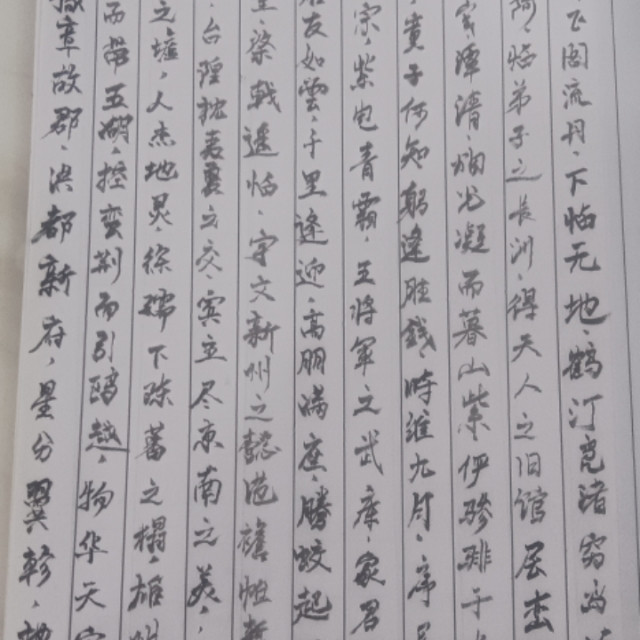 章故郡，洪都新府，星分翼轸，
而带五湖，控蛮荆而引瓯越，物华天
之墟，人杰地灵，徐孺下陈蕃之榻，雄
台隍枕夷夏之交，宾主尽东南之美，
棨戟遥临，宇文新州之懿范，襜帷
友如雲，千里逢迎，高朋满座，腾蛟起
宗，紫电青霜，王将军之武库，家君
童子何知，躬逢胜饯，时维九月，序
潭清，烟光凝而暮山紫，俨骖騑于
阿，临弟子之长洲，得天人之旧馆，层峦
飞阁流丹，下临无地，鹤汀凫渚，穷